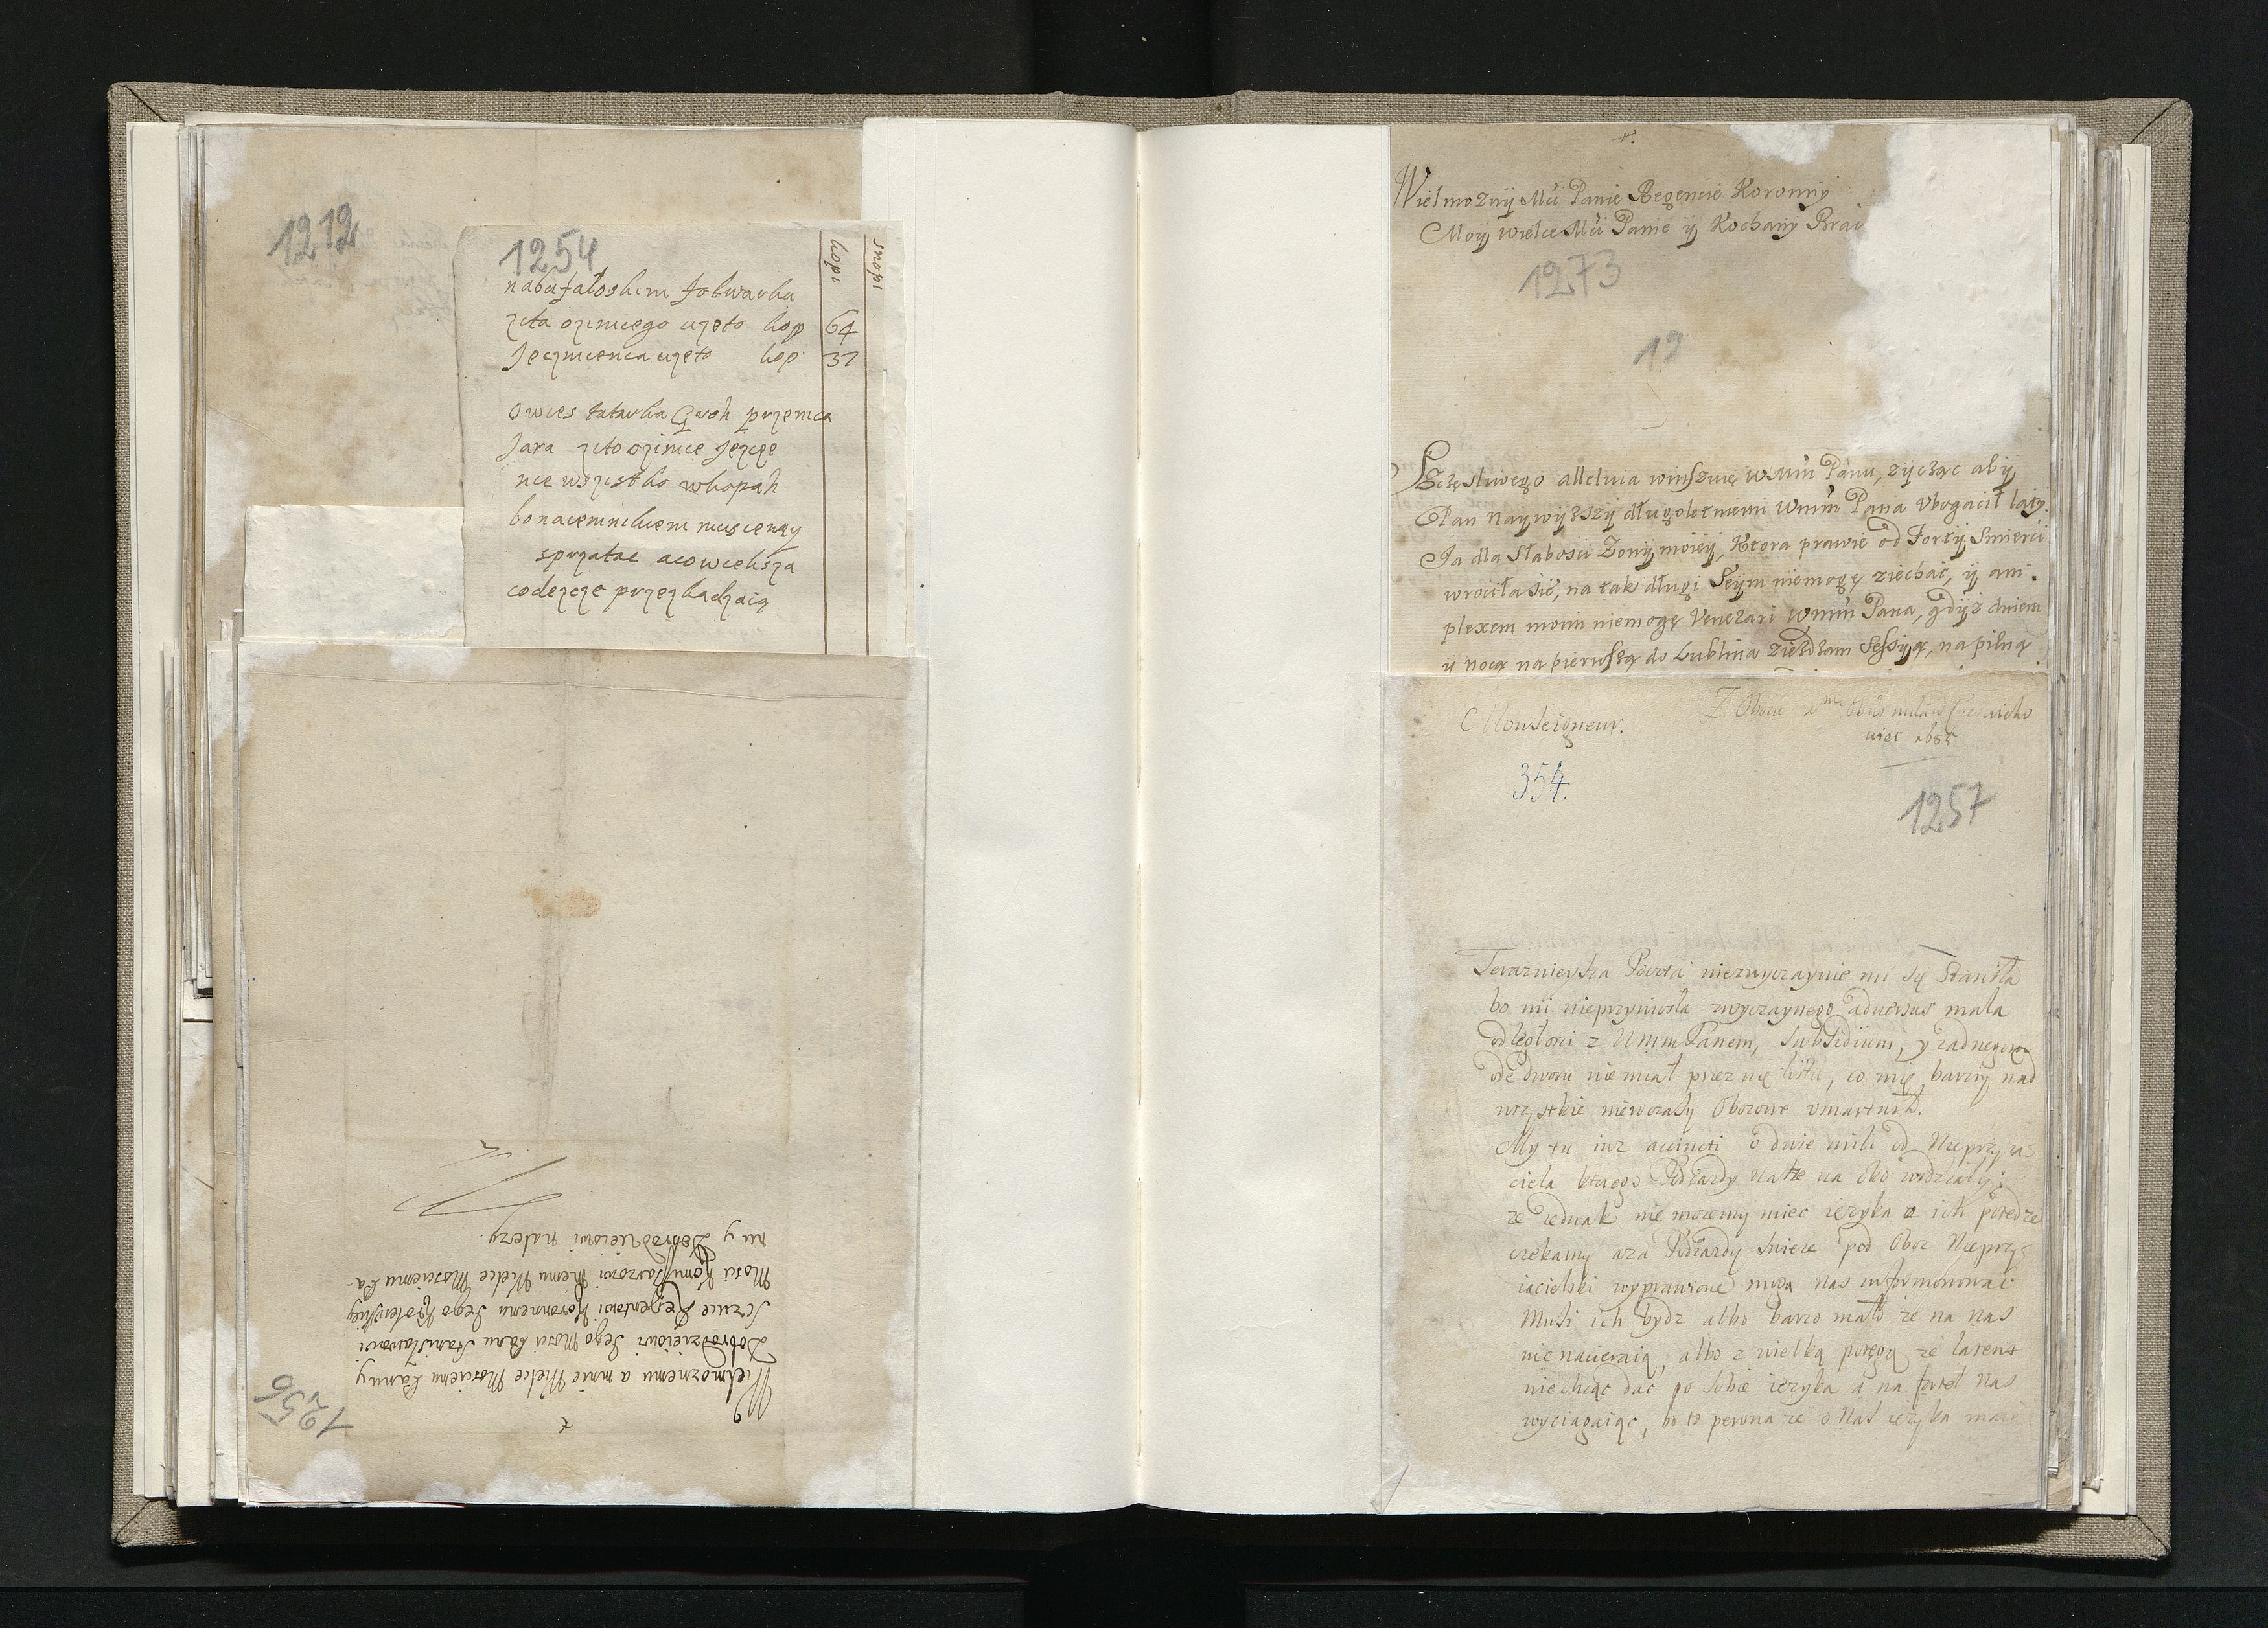 1212
1254
kopi
snopi
nabafałoskim folwarku
zÿta ozimiego uzęto kop 64
Jęczmienia uzęto kop 37
owies tatarka Groh przenica
Jara zyto ozimie Jęczę
nie wszistko wkopah
bonaciemnikiem musiemy
sprzatac acowieksza
codeszcze przezkadzaią
Wielmoznemu a mnie Wielce Mosciemu Panu y
Dobrodzieiowi Jego Mosci Panu Stanisławowi
Regentowi Koronnemu Jego Krolewskiey
Mosci Kommissarzowi memu Wielce Mosciemu Pa-
nu y Dobrodzieiowi nalezy.
1256
Wielmożnÿ Mći Panie Regencie Koronnÿ
Moÿ wielce Mći Panie ÿ Kochanÿ Brac
1273
19
Szczęsliwego alleluia winszuię WMM Panu, zÿcząc abÿ
Pan Naÿwÿższÿ długoletniemi WMM Pana Vbogacił latÿ.
Ja dla słabosci Zonÿ moieÿ, Ktora prawie od Fortÿ Smierci
wrociła sie, na tak długi Seÿm niemogę ziechać, ÿ am-
plexem moim niemogę Venerari WMM Pana, gdÿż dniem
ÿ nocą na pierwszą do Lublina zieżdzam Sessÿą, na pilną
Monseigneur.
Z Obozu
1685
354.
1257
Terazniejsza Poczta niezwyczaynie mi się Stawiła
bo mi nieprzyniosła zwyczaynego adversus mala
odległosci z WMM Panem, Subsidium, y zadnegom
ode dworu nie miał przez nię listu, co mię barziy nad
wszystkie niewczasy Obozowe vmartwił.
My tu iuz accincti o dwie mili od Nieprzyia
ciela ktorego Podiazdy nasze na oko widziały;
ze iednak nie mozemy miec ięzyka z ich potędze
czekamy aza Podiazdy swieze pod Oboz Nieprzy
iacielski wyprawione mogą nas informowac
Musi ich bydz albo barzo mało ze na nas
nie nacieraią, albo z wielką potęgą ze latent
niechcąc dac po sobie ięzyka a na fortel nas
wyciągaiąc, bo to pewna ze o nas ięzyka maią